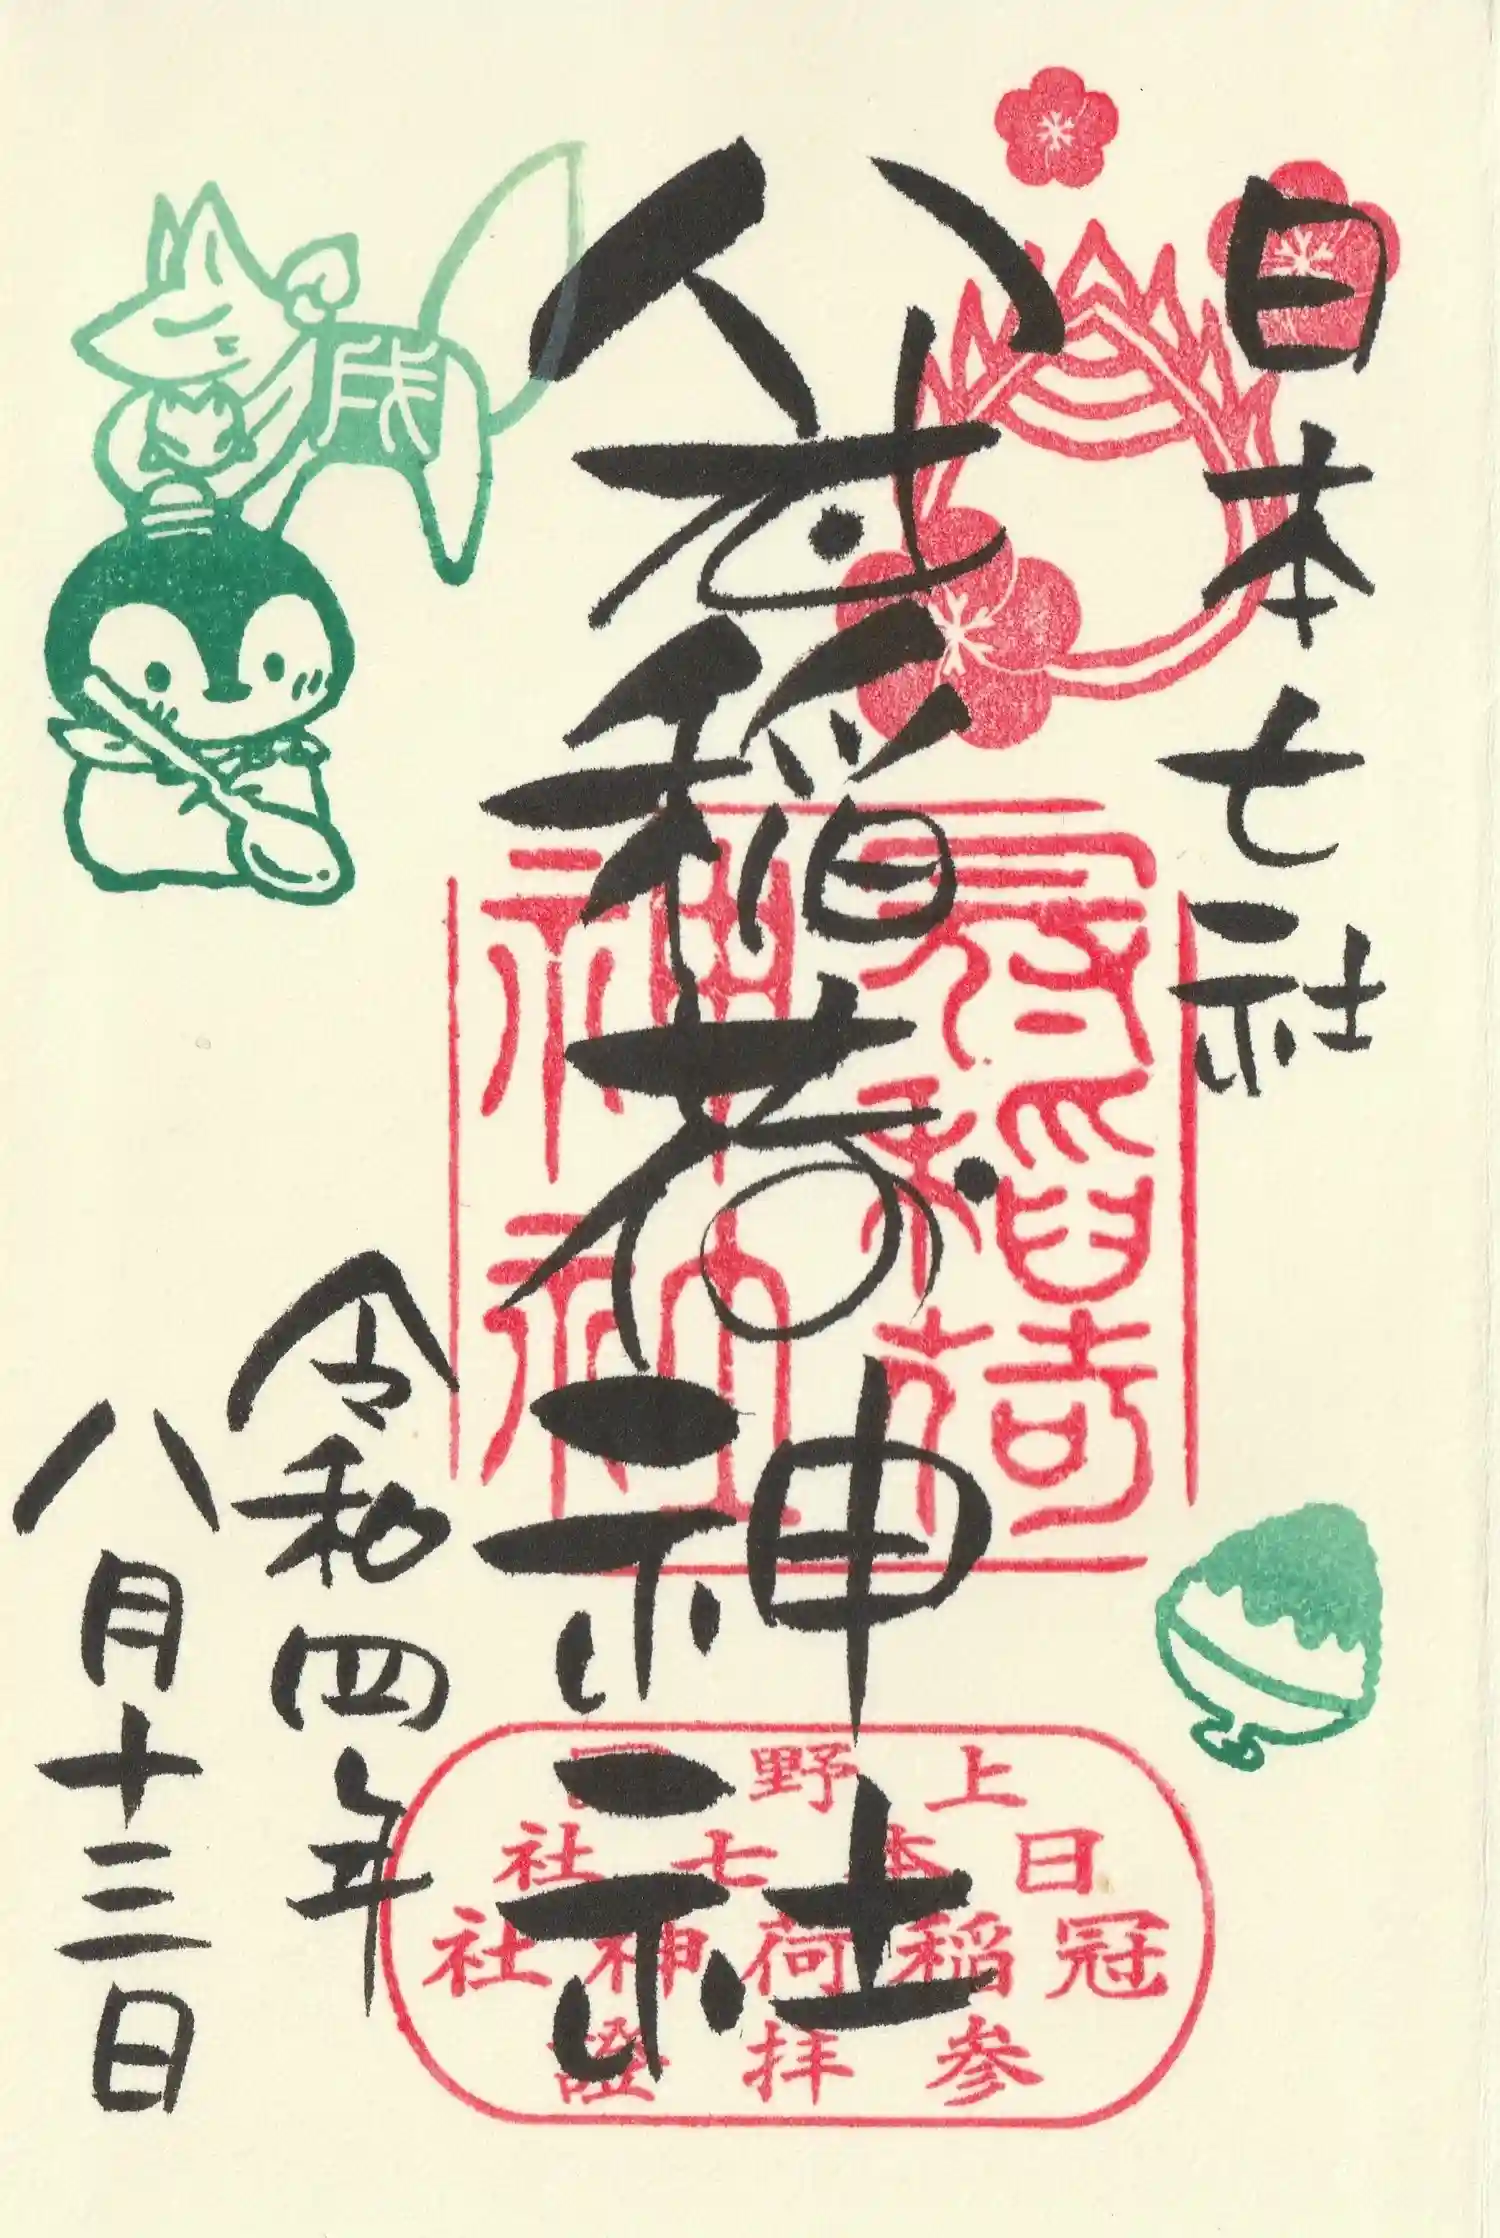 日本七社
冠稲荷神社
令和四年
八月十三日
冠稲荷
上野国
日本七社
冠稲荷神社
参拝證